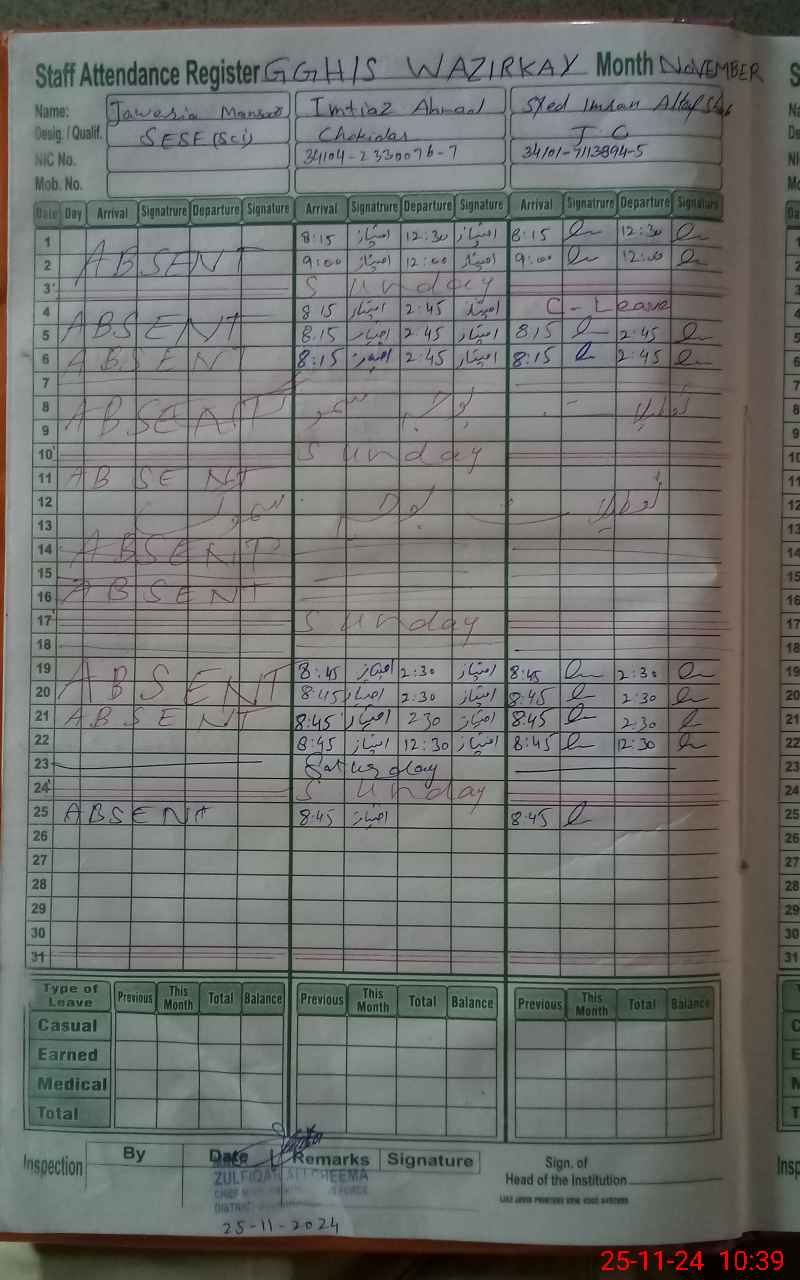 Staff Attendance Register GGH/S WAZIRKAY Month NOVEMBER
Name: Jawaria Imtiaz Ahmad Syed Imran
Desig. / Qualif. SESE (Sci) Chokidar
NIC No. 34104-2330076-7 34101-7113894-5
Mob. No.
Date Day Arrival Signatrure Departure Signature Arrival Signatrure Departure Signature Arrival Signatrure Departure Signature
1 8:15 امتیاز 12:30 امتیاز 8:15 12:30
2 ABSENT 9:00 امتیاز 12:00 امتیاز 9:00 12:00
3 Sunday
4 8 15 امتیاز 2:45 امتیاز C-Leave
5 ABSENT 8.15 امتیاز 2:45 امتیاز 8.15 2:45
6 ABSENT 8:15 امتیاز 2:45 امتیاز 8:15 2:45
7
8 ABSENT
9
10 Sunday
11 ABSENT
12
13
14 ABSENT
15
16 ABSENT
17 Sunday
18
19 ABSENT 8:45 امتیاز 2:30 امتیاز 8:45 2:30
20 8:45 امتیاز 2:30 امتیاز 8:45 2:30
21 ABSENT 8:45 امتیاز 2:30 امتیاز 8:45 2:30
22 8:45 امتیاز 12:30 امتیاز 8:45 12:30
23 Saturday
24 Sunday
25 ABSENT 8:45 امتیاز 8:45
26
27
28
29
30
31
Type of Leave Previous This Month Total Balance Previous This Month Total Balance Previous This Month Total Balance
Casual
Earned
Medical
Total
Inspection By Date Remarks Signature Sign. of
Head of the Institution
ZULFIQAR ALI CHEEMA
DISTRICT
25-11-2024
25-11-24 10:39